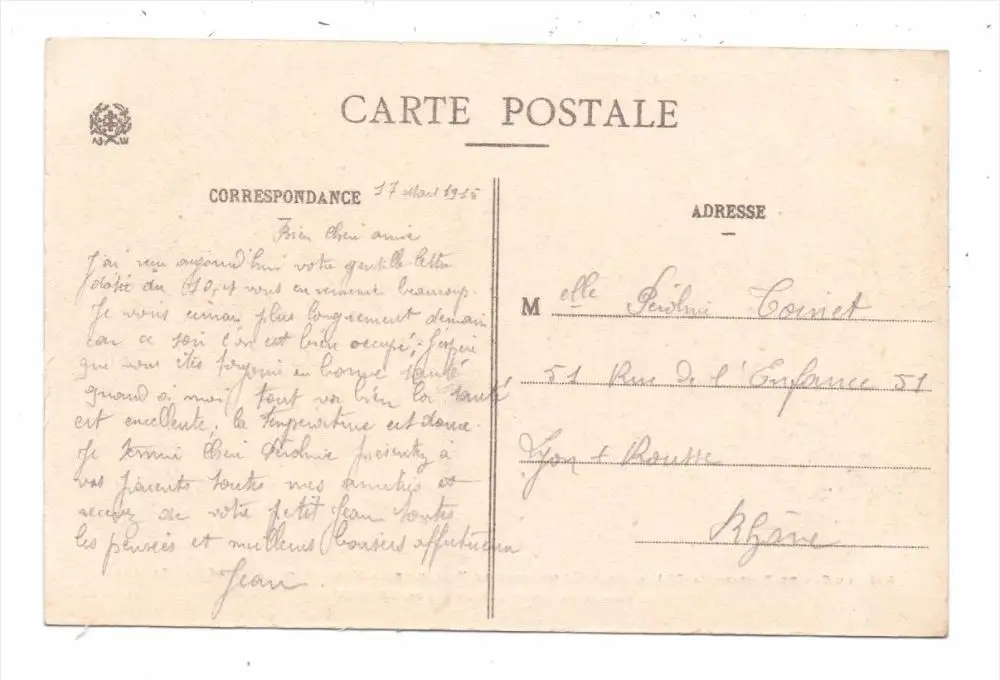 CARTE POSTALE
CORRESPONDANCE 17 1915
ADRESSE
Bien cheri amie
J'ai reçu aujourd'hui votre gentille lettre
datée du 10, et vous en remercie beaucoup.
Je vous plus longuement demain
car ce soir l'on est bien occupé, J'espère
que vous êtes toujours en bonne santé
quand à moi, tout va bien la santé
est excellente, la température est douce.
Je termine cheri présentez à
vos parents toutes mes amitiés et
recevez de votre petit Jean toutes
les pensées et meilleurs baisers affectueux
Jean.
Melle
51 Rue de l'Enfance 51
Lyon + Rousse
Rhône